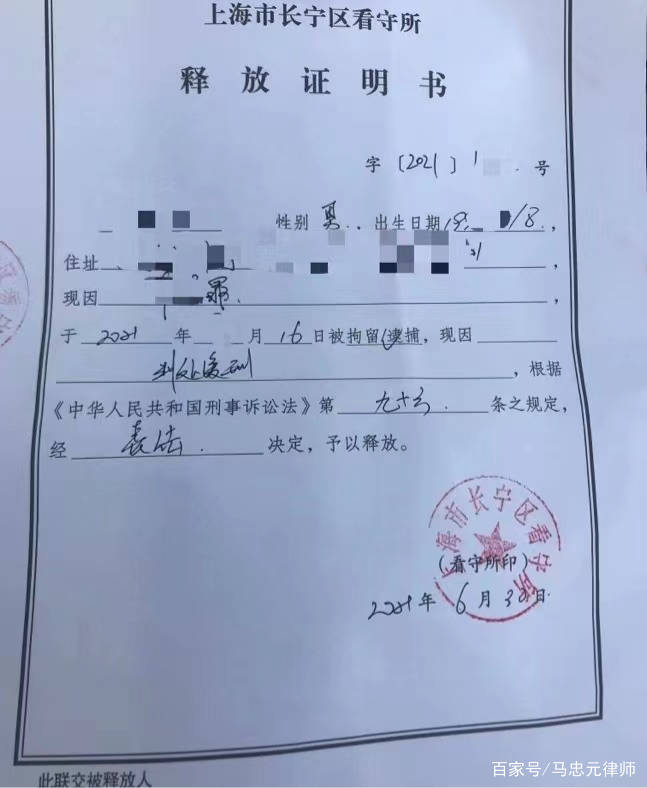 上海市长宁区看守所
释放证明书
字〔2021〕1 号
性别 男 出生日期19 /8,
住址 ,
现因 罪,
于 2021 年 月 16 日被拘留(逮捕,现因
判处缓刑,根据
《中华人民共和国刑事诉讼法》第 九十六 条之规定,
经 长法 决定,予以释放。
上海市长宁区看守所
(看守所印)
2021年 6月 30日
此联交被释放人
百家号/马忠元律师